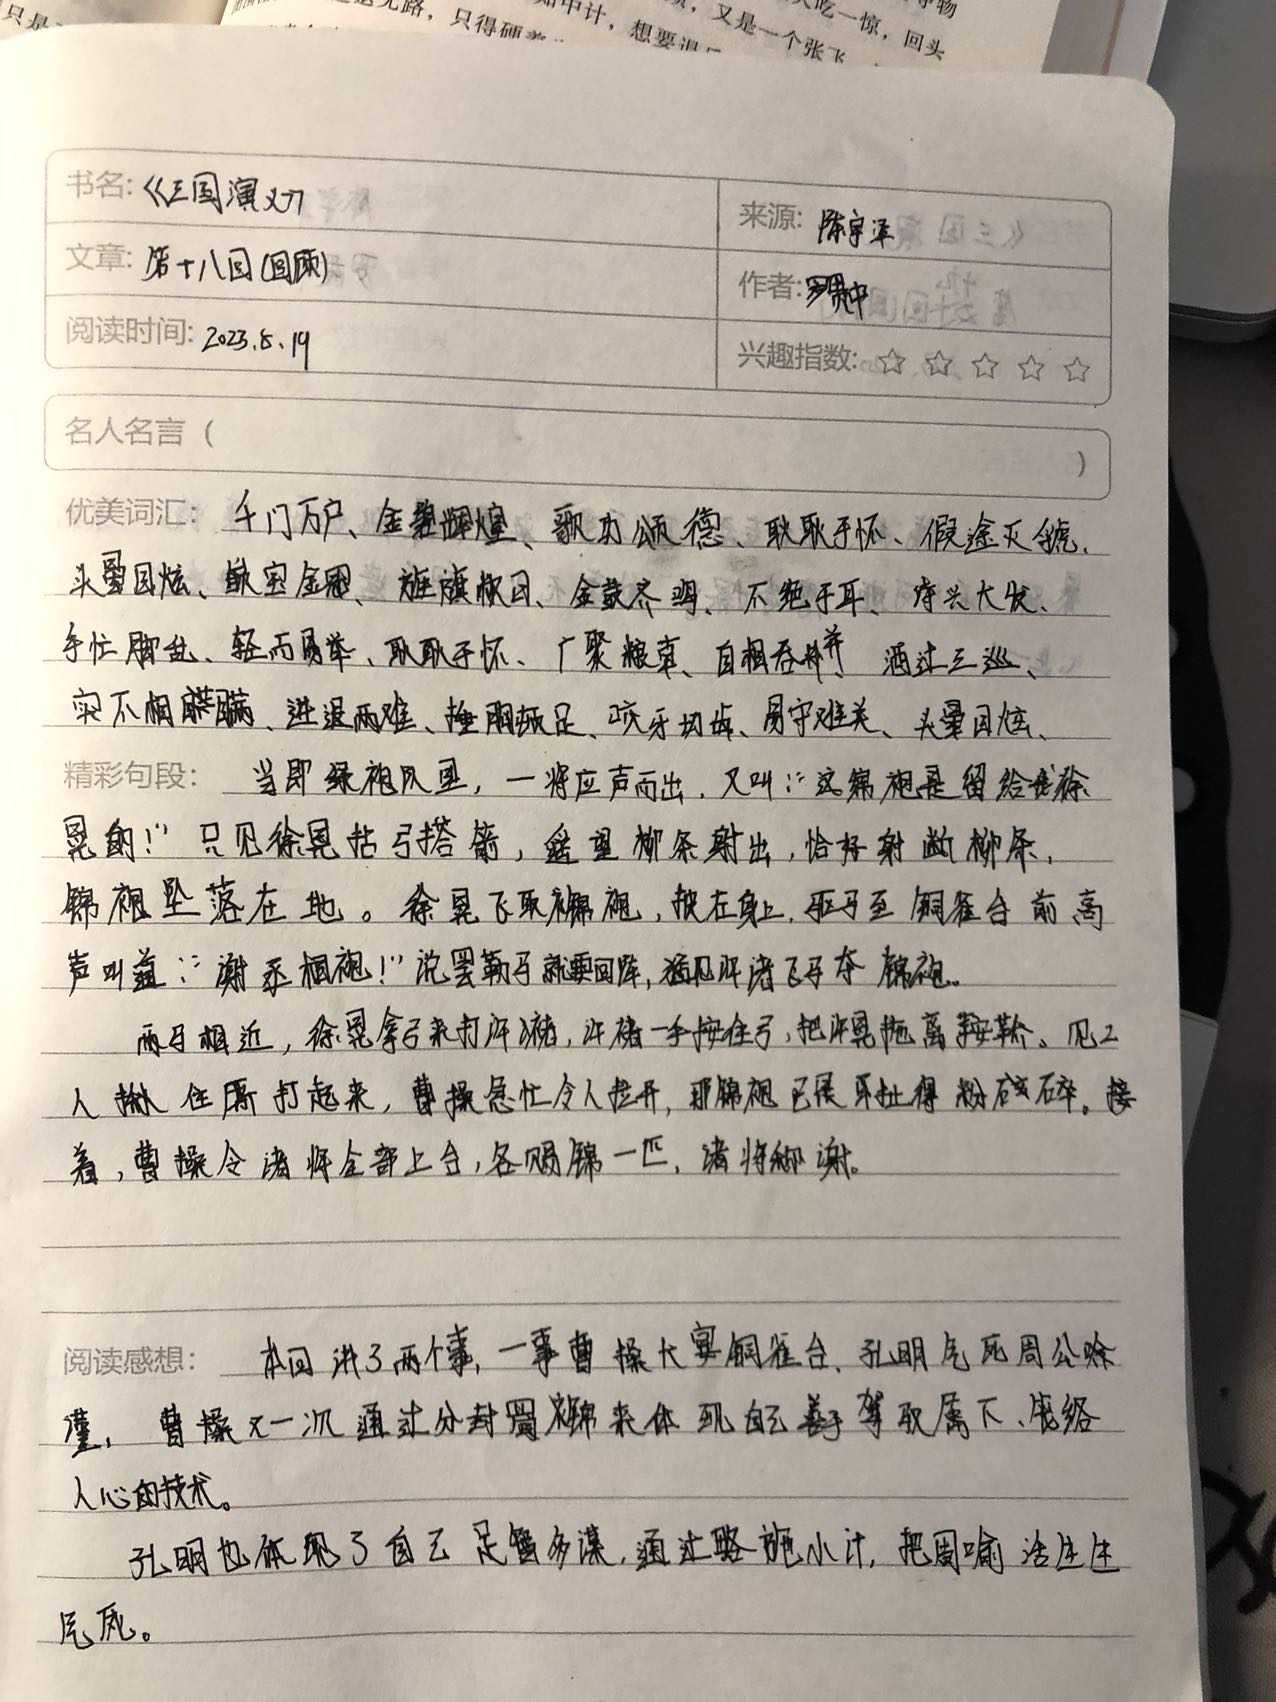 书名:《三国演义》
来源: 陈宇泽
文章: 第十八回(回顾)
作者: 罗贯中
阅读时间: 2023.8.19
兴趣指数: ☆ ☆ ☆ ☆ ☆
名人名言( )
优美词汇: 千门万户、金碧辉煌、歌功颂德、耿耿于怀、假途灭虢、
头晕目炫、嵌宝金冠、旌旗蔽日、金鼓齐鸣、不绝于耳、诗兴大发、
手忙脚乱、轻而易举、耿耿于怀、广聚粮草、自相吞并 酒过三巡、
实不相瞒、进退两难、捶胸顿足、咬牙切齿、易守难关、头晕目炫、
精彩句段: 当即绿袍队里,一将应声而出,又叫:“这锦袍是留给我徐
晃的!” 只见徐晃拈弓搭箭,遥望柳条射出,恰好射断柳条,
锦袍坠落在地。徐晃飞取锦袍,披在身上,驱马至铜雀台前高
声叫道:“谢丞相袍!”说罢勒马就要回阵,猛见许褚飞马夺锦袍。
两马相近,徐晃拿弓来打许褚,许褚一手按住弓,把徐晃拖离鞍鞒。见二
人揪住厮打起来,曹操急忙令人拉开,那锦袍已被扯得粉碎。接
着,曹操令诸将全部上台,各赐锦一匹,诸将称谢。
阅读感想: 本回讲了两个事,一事曹操大宴铜雀台、孔明气死周公
瑾,曹操又一次通过分封蜀锦来体现自己善于驾驭属下、笼络
人心的技术。
孔明也体现了自己足智多谋,通过略施小计,把周喻活生生
气死。